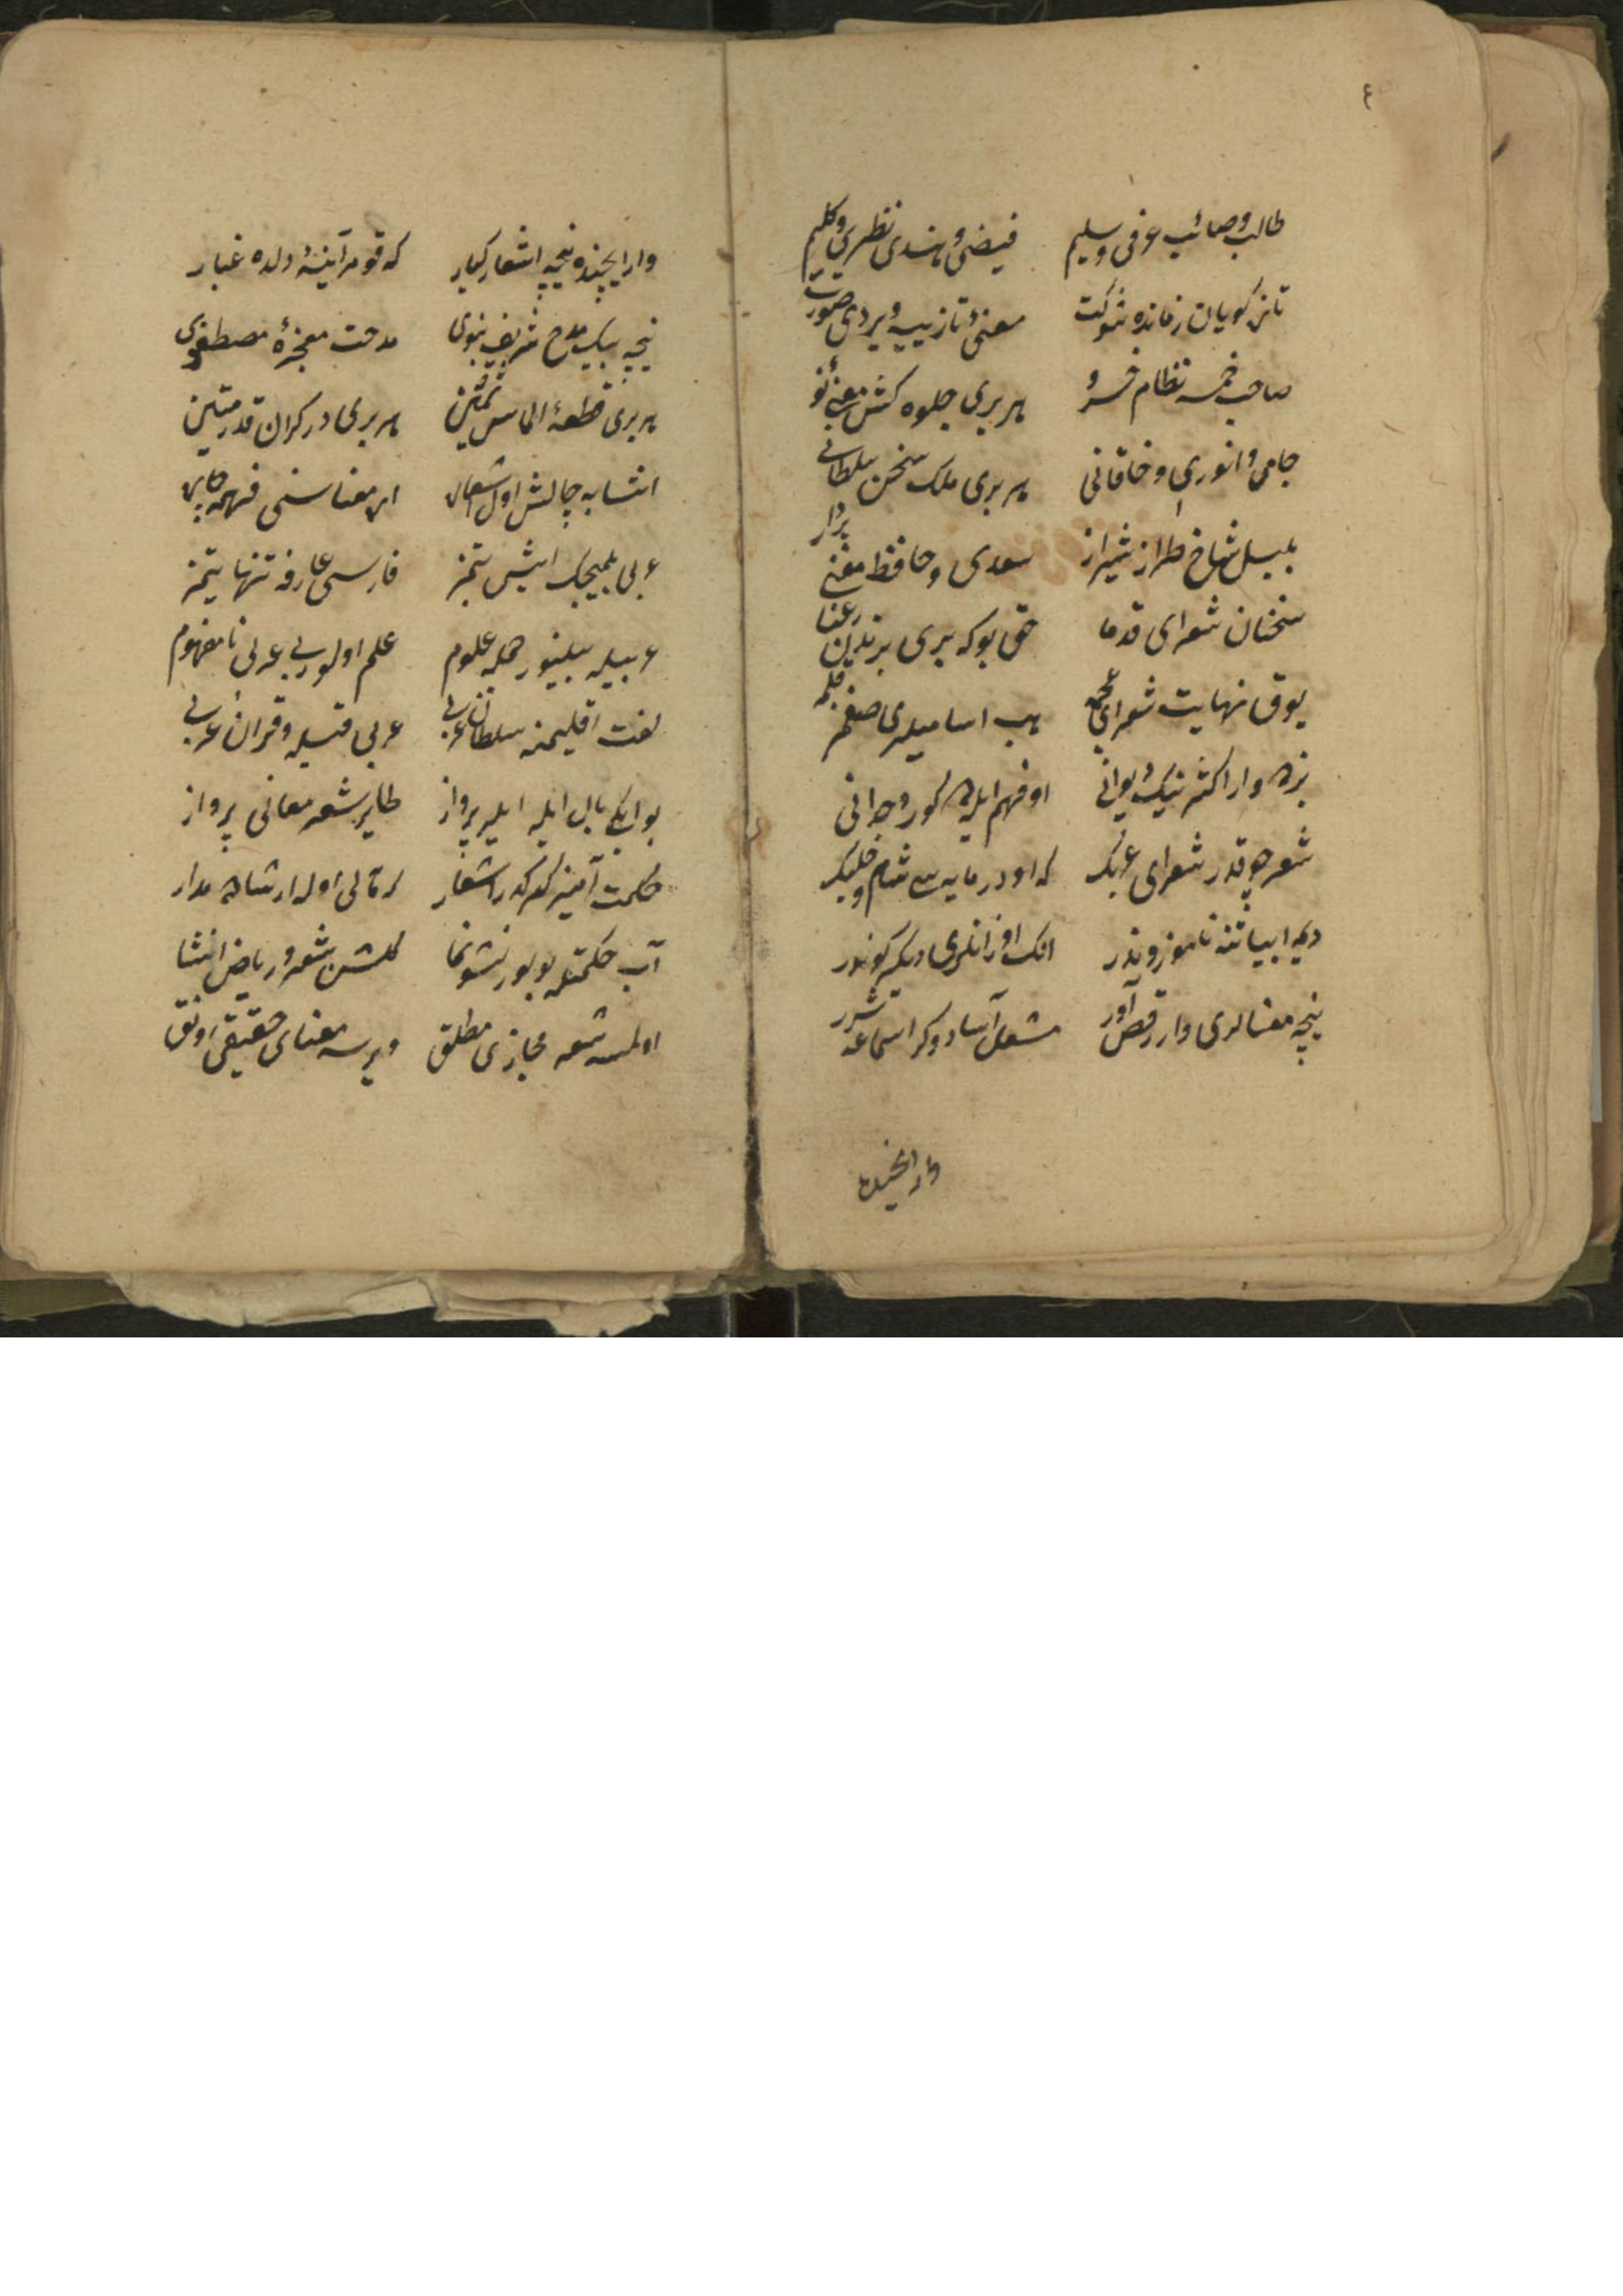 ٤
طالب و صائب و عرفی و سلیم فیضی و هندی نظیری و کلیم
تازه‌ گویان زمانده شوکت معنئ تازه‌یه ویردی صورت
صاحب خمسه نظام خسرو هر بری جلوه کش معنئ نو
جامی و انوری و خاقانی هر بری ملک سخن سلطانی
بلبل شاخ طراز شیراز سعدی و حافظ معنی پرداز
سخنان شعرای قدما حق بو که بری برندن رعنا
یوق نهایت شعرای عجمه هب اسامیلری صغمز قلمه
بزده وار اکثرینک دیوانی او فهم ایله کور وجدانی
شعر چوقدر شعرای عربک که او در مایه سی شام و حلبک
دیمه ابیاتنه ناموزوندر انک اوزانلری دیکر کوندر
نیچه معنالری وار رقص آور مشعل آسا دوکر اسماعه شرر
وار ایچنده
وار ایچنده نیچه اشعار کبار که قومز آینهٔ دلده غبار
نیچه بیک مدح شریف نبوی مدحت معجزهٔ مصطفوی
هر بری قطعهٔ الماس ثمین هر بری در کران قدر متین
انتسابه چالش اول اشعاره ار معناسنی فهمه چاره
عربی بلمیجک ایش بتمز فارسی عارفه تنها یتمز
عربیله بیلنور جمله علوم علم اولورمی عربی نامفهوم
لغت اقلیمنه سلطان عربی عربی قبله و قرآن عربی
بو ایکی بال ایله ایلر پرواز طایر شعر معانی پرواز
حکمت آمیز کرکدر اشعار که مآلی اوله ارشاده مدار
آب حکمتله بولور نشو و نما کلشن شعر و ریاض انشا
اولمسه شعر مجازی مطلق ویرسه معنای حقیقی رونق